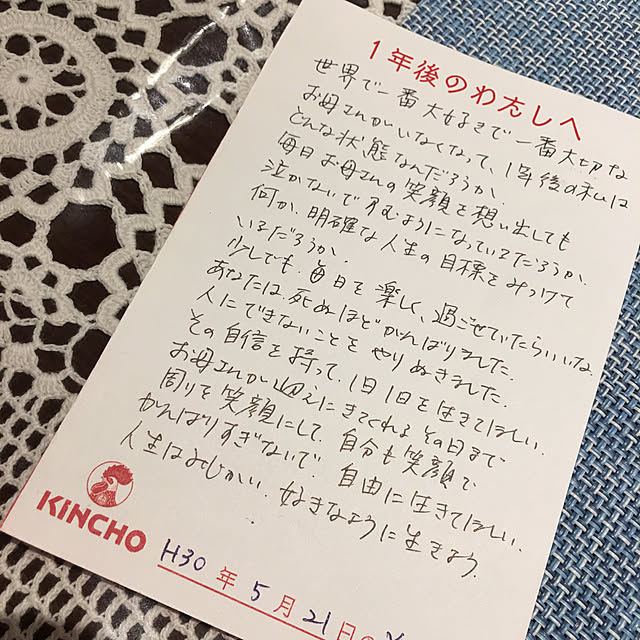 1年後のわたしへ
世界で一番大好きで一番大切な
お母さんがいなくなって、1年後の私は
どんな状態なんだろうか。
毎日お母さんの笑顔を想い出しても
泣かないですむようになっているだろうか。
何か、明確な人生の目標をみつけて
いるだろうか。
少しでも、毎日を楽しく、過ごせていたらいいな。
あなたは、死ぬほどがんばりました。
人にできないことをやりぬきました。
その自信を持って、1日1日を生きてほしい。
お母さんが迎えにきてくれるその日まで
周りを笑顔にして、自分も笑顔で
がんばりすぎないで、自由に生きてほしい。
人生はみじかい。好きなように生きよう。
KINCHO
H30年5月21日の